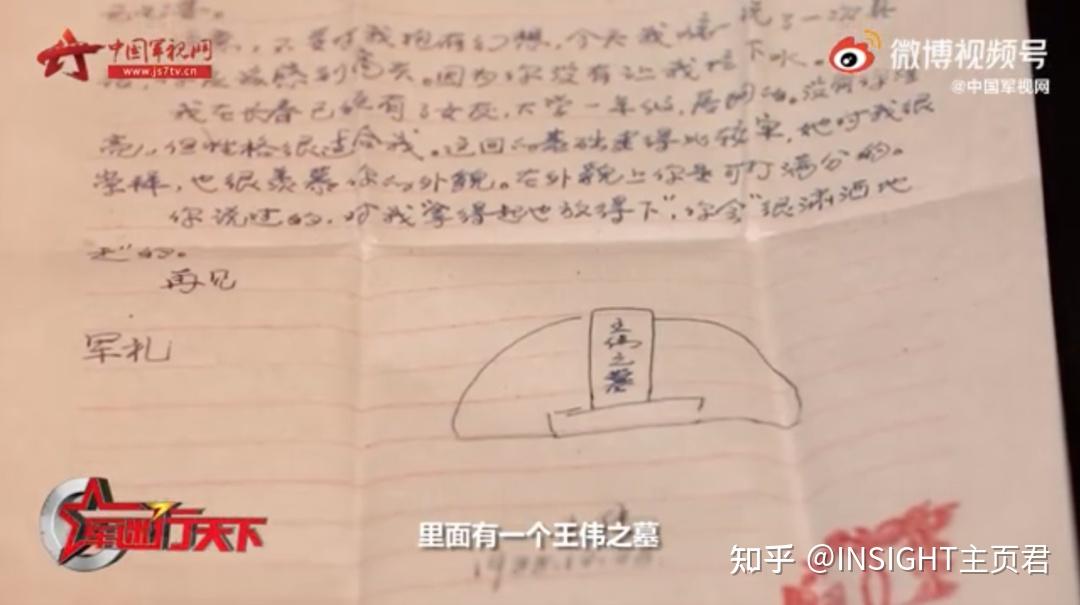 中国军视网
www.js7tv.cn
微博视频号
@中国军视网
不要对我抱有幻想,今天我 说了一次真
感到高兴。因为你没有让我 下水。
我在长春已经有了女友,大学一年级, 没有你漂
亮,但性格很适合我。这回的基础建得比较牢,她对我很
崇拜,也很羡慕你的外貌。在外貌上你是可打满分的。
你说过的,对我“拿得起也放得下”,你会“很潇洒地
走”的。
再见
军礼
王伟之墓
军迷行天下
里面有一个王伟之墓
知乎 @INSIGHT主页君